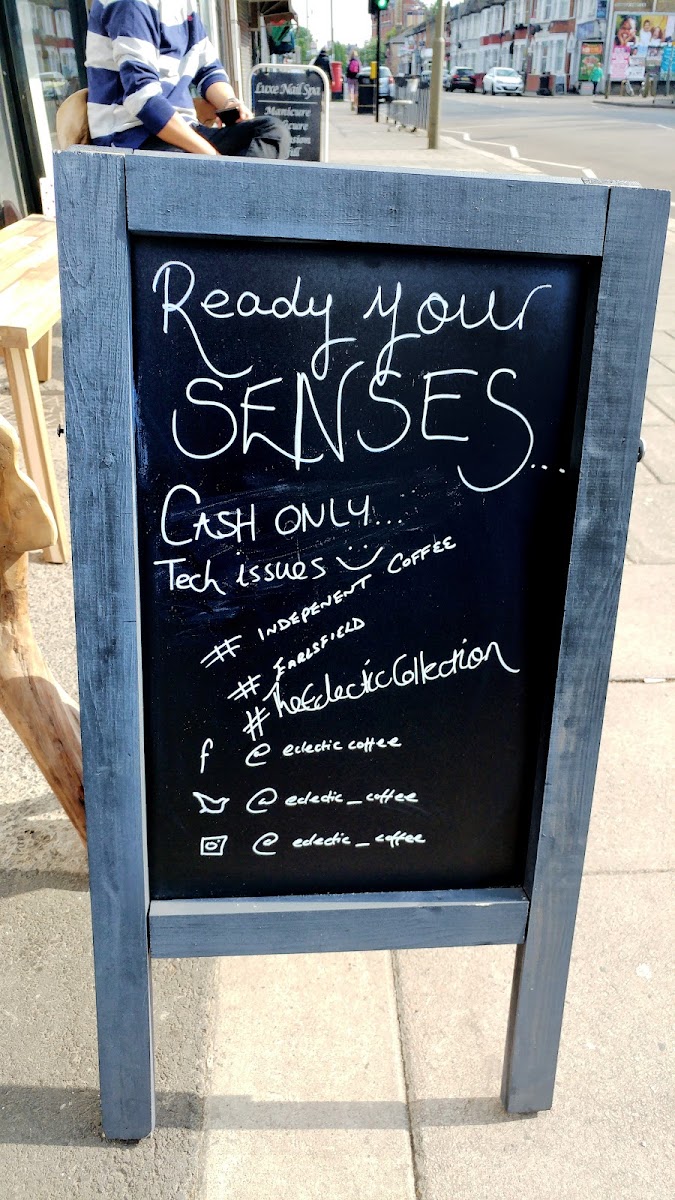 Luxe Nail Spa
Manicure
Ready your
SENSES...
CASH ONLY...
Tech issues
# INDEPENENT COFFEE
# EARLSFIELD
#TheEclecticCollection
f @ eclectic coffee
@ eclectic_coffee
@ eclectic_coffee